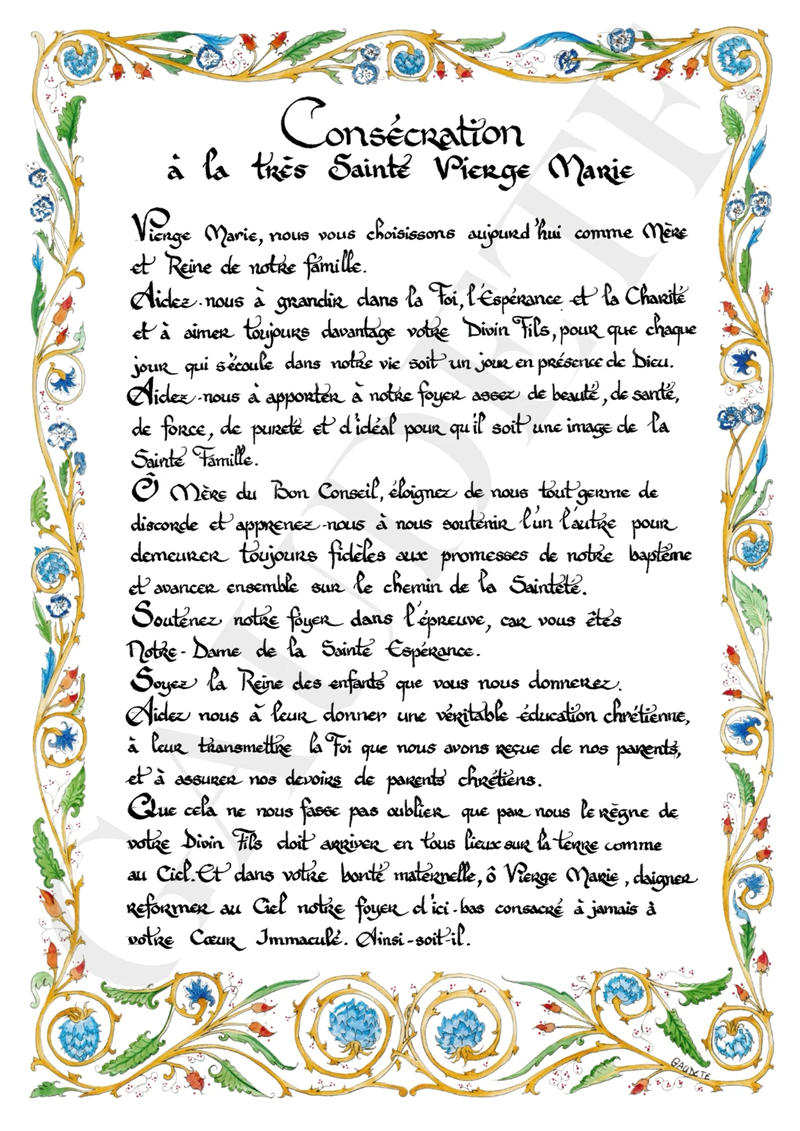 Consécration
à la très Sainte Vierge Marie
Vierge Marie, nous vous choisissons aujourd'hui comme Mère
et Reine de notre famille.
Aidez-nous à grandir dans la Foi, l'Espérance et la Charité
et à aimer toujours davantage votre Divin Fils, pour que chaque
jour qui s'écoule dans notre vie soit un jour en présence de Dieu.
Aidez-nous à apporter à notre foyer assez de beauté, de santé,
de force, de pureté et d'idéal pour qu'il soit une image de la
Sainte Famille.
Ô Mère du Bon Conseil, éloignez de nous tout germe de
discorde et apprenez-nous à nous soutenir l'un l'autre pour
demeurer toujours fidèles aux promesses de notre baptême
et avancer ensemble sur le chemin de la Sainteté.
Soutenez notre foyer dans l'épreuve, car vous êtes
Notre-Dame de la Sainte Espérance.
Soyez la Reine des enfants que vous nous donnerez.
Aidez nous à leur donner une véritable éducation chrétienne,
à leur transmettre la Foi que nous avons reçue de nos parents,
et à assurer nos devoirs de parents chrétiens.
Que cela ne nous fasse pas oublier que par nous le règne de
votre Divin Fils doit arriver en tous lieux sur la terre comme
au Ciel. Et dans votre bonté maternelle, ô Vierge Marie, daigner
reformer au Ciel notre foyer d'ici-bas consacré à jamais à
votre Cœur Immaculé. Ainsi-soit-il.
GAUDETE
GAUDETE